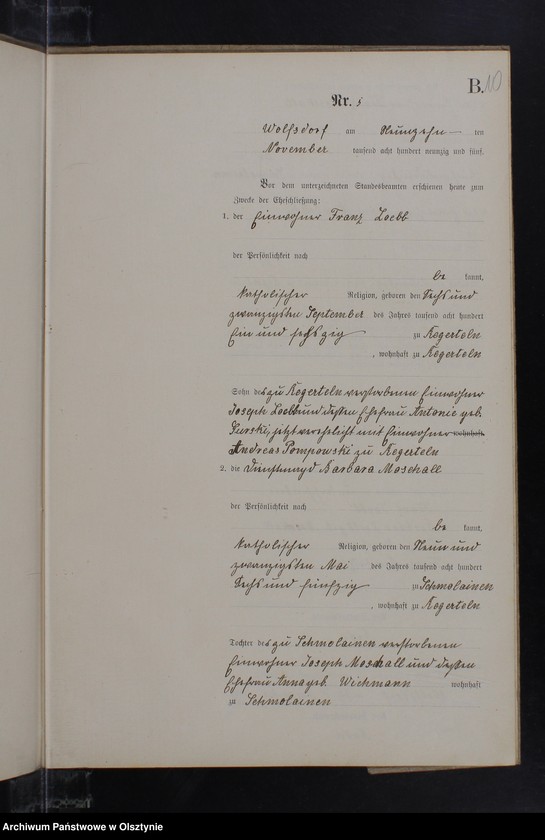 B. 10
Nr. 5
Wolfsdorf am Neunzehn ten
November tausend acht hundert neunzig und fünf.
Vor dem unterzeichneten Standesbeamten erschienen heute zum
Zwecke der Eheschließung:
1. der Einwohner Franz Loebb
der Persönlichkeit nach
be kannt,
katholischer Religion, geboren den Sechs und
zwanzigsten September des Jahres tausend acht hundert
Ein und sechszig zu Regerteln
, wohnhaft zu Regerteln
Sohn des zu Regerteln verstorbenen Einwohner
Joseph Loebb und dessen Ehefrau Antonie geb.
Gurski, jetzt verehelicht mit Einwohner wohnhaft
Andreas Pompowski zu Regerteln
2. die Dienstmagd Barbara Moschall
der Persönlichkeit nach
be kannt,
katholischer Religion, geboren den Neun und
zwanzigsten Mai des Jahres tausend acht hundert
Sechs und fünfzig zu Schmolainen
, wohnhaft zu Regerteln
Tochter des zu Schmolainen verstorbenen
Einwohner Joseph Moschall und dessen
Ehefrau Anna geb. Wichmann wohnhaft
zu Schmolainen
Archiwum Państwowe w Olsztynie